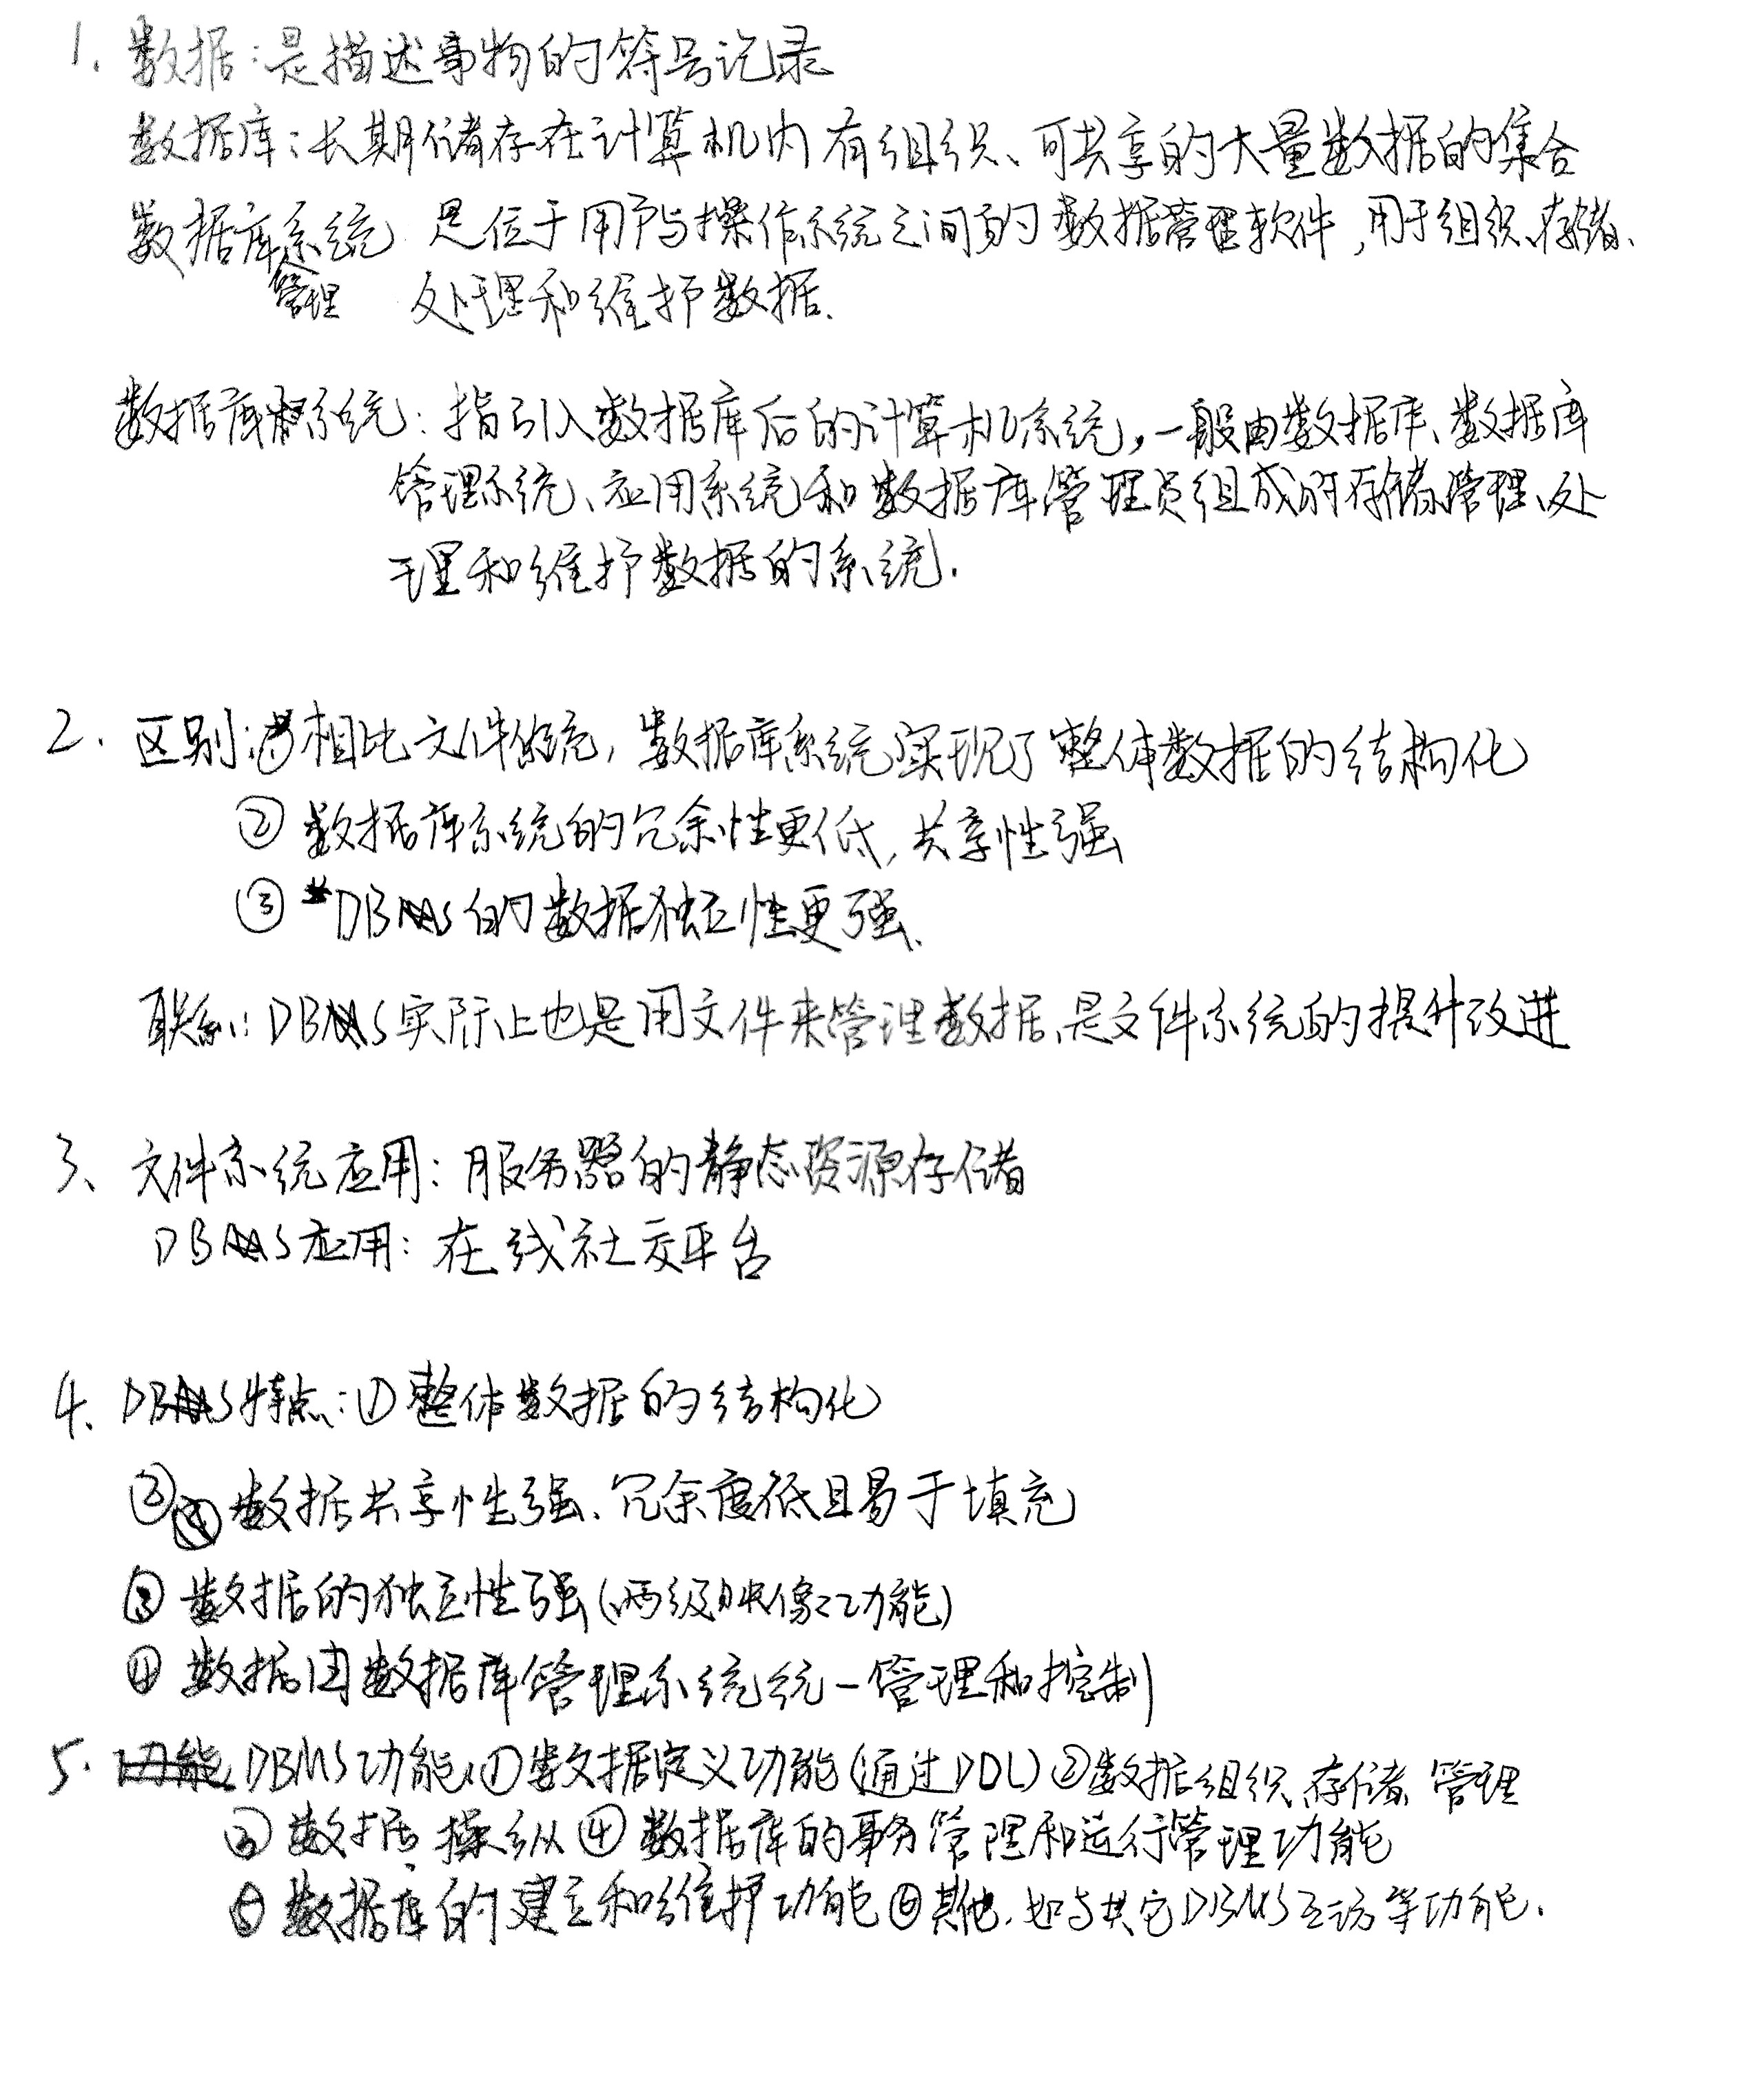 1. 数据：是描述事物的符号记录
数据库：长期储存在计算机内有组织、可共享的大量数据的集合
数据库系统 是位于用户与操作系统之间的数据管理软件，用于组织、存储、
管理 处理和维护数据.
数据库系统：指引入数据库后的计算机系统，一般由数据库、数据库
管理系统、应用系统和数据库管理员组成的存储、管理、处
理和维护数据的系统.
2. 区别：① 相比文件系统，数据库系统实现了整体数据的结构化
② 数据库系统的冗余性更低，共享性强
③ DBMS的数据独立性更强.
联系：DBMS实际上也是用文件来管理数据，是文件系统的提升改进
3、文件系统应用：服务器的静态资源存储
DBMS应用：在线社交平台
4、DBMS特点：① 整体数据的结构化
② 数据共享性强、冗余度低且易于填充
③ 数据的独立性强（两级映像功能）
④ 数据由数据库管理系统统一管理和控制
5. DBMS功能：① 数据定义功能（通过DDL）② 数据组织、存储、管理
③ 数据操纵 ④ 数据库的事务管理和运行管理功能
⑤ 数据库的建立和维护功能 ⑥ 其他，如与其它DBMS互访等功能.